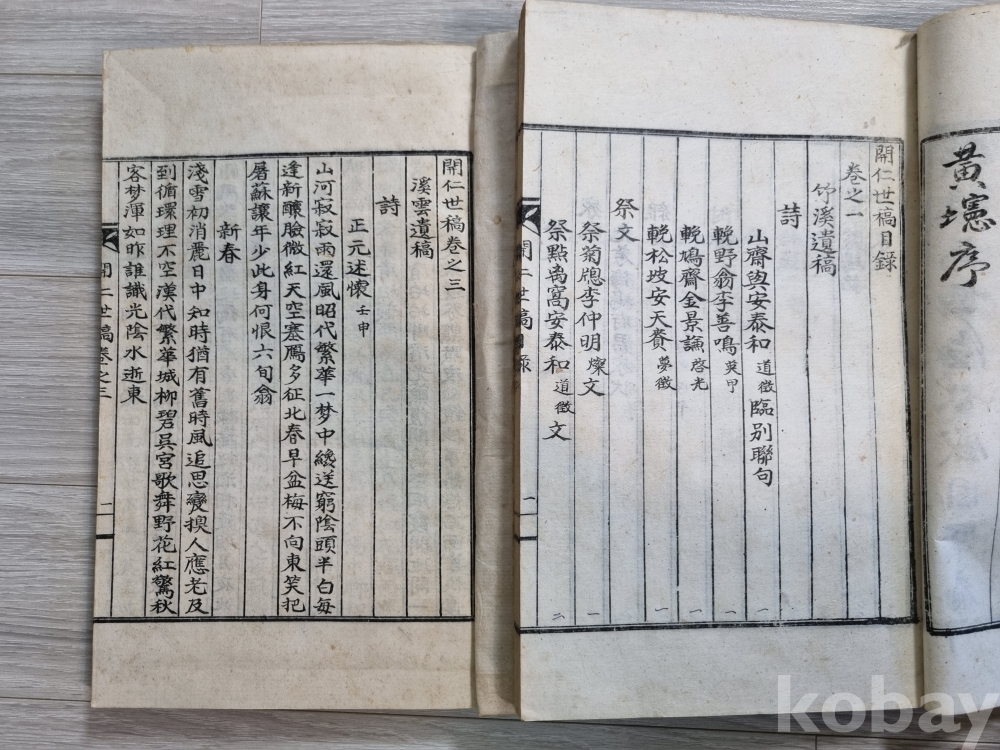 黃壖序
開仁世稿目錄
卷之一
竹溪遺稿
詩
山齋與安泰和道徵臨別聯句 一
輓野翁李善鳴莫甲 一
輓鳩齋金景謙啓光 一
輓松坡安天賚夢徵 一
祭文
祭菊牕李仲明燦文 一
祭點禹窩安泰和道徵文 二
開仁世稿目錄
一
開仁世稿卷之三
溪雲遺稿
詩
正元述懷壬申
山河寂寂雨還風昭代繁華一梦中纔送窮陰頭半白每
逢新釀臉微紅天空塞鴈多征北春早盆梅不向東笑把
屠蘇讓年少此身何恨六旬翁
新春
淺雪初消麗日中知時猶有舊時風追思變換人應老及
到循環理不空漢代繁華城柳碧吳宮歌舞野花紅驚秋
客梦渾如昨誰識光陰水逝東
開仁世稿卷之三
一
kobay